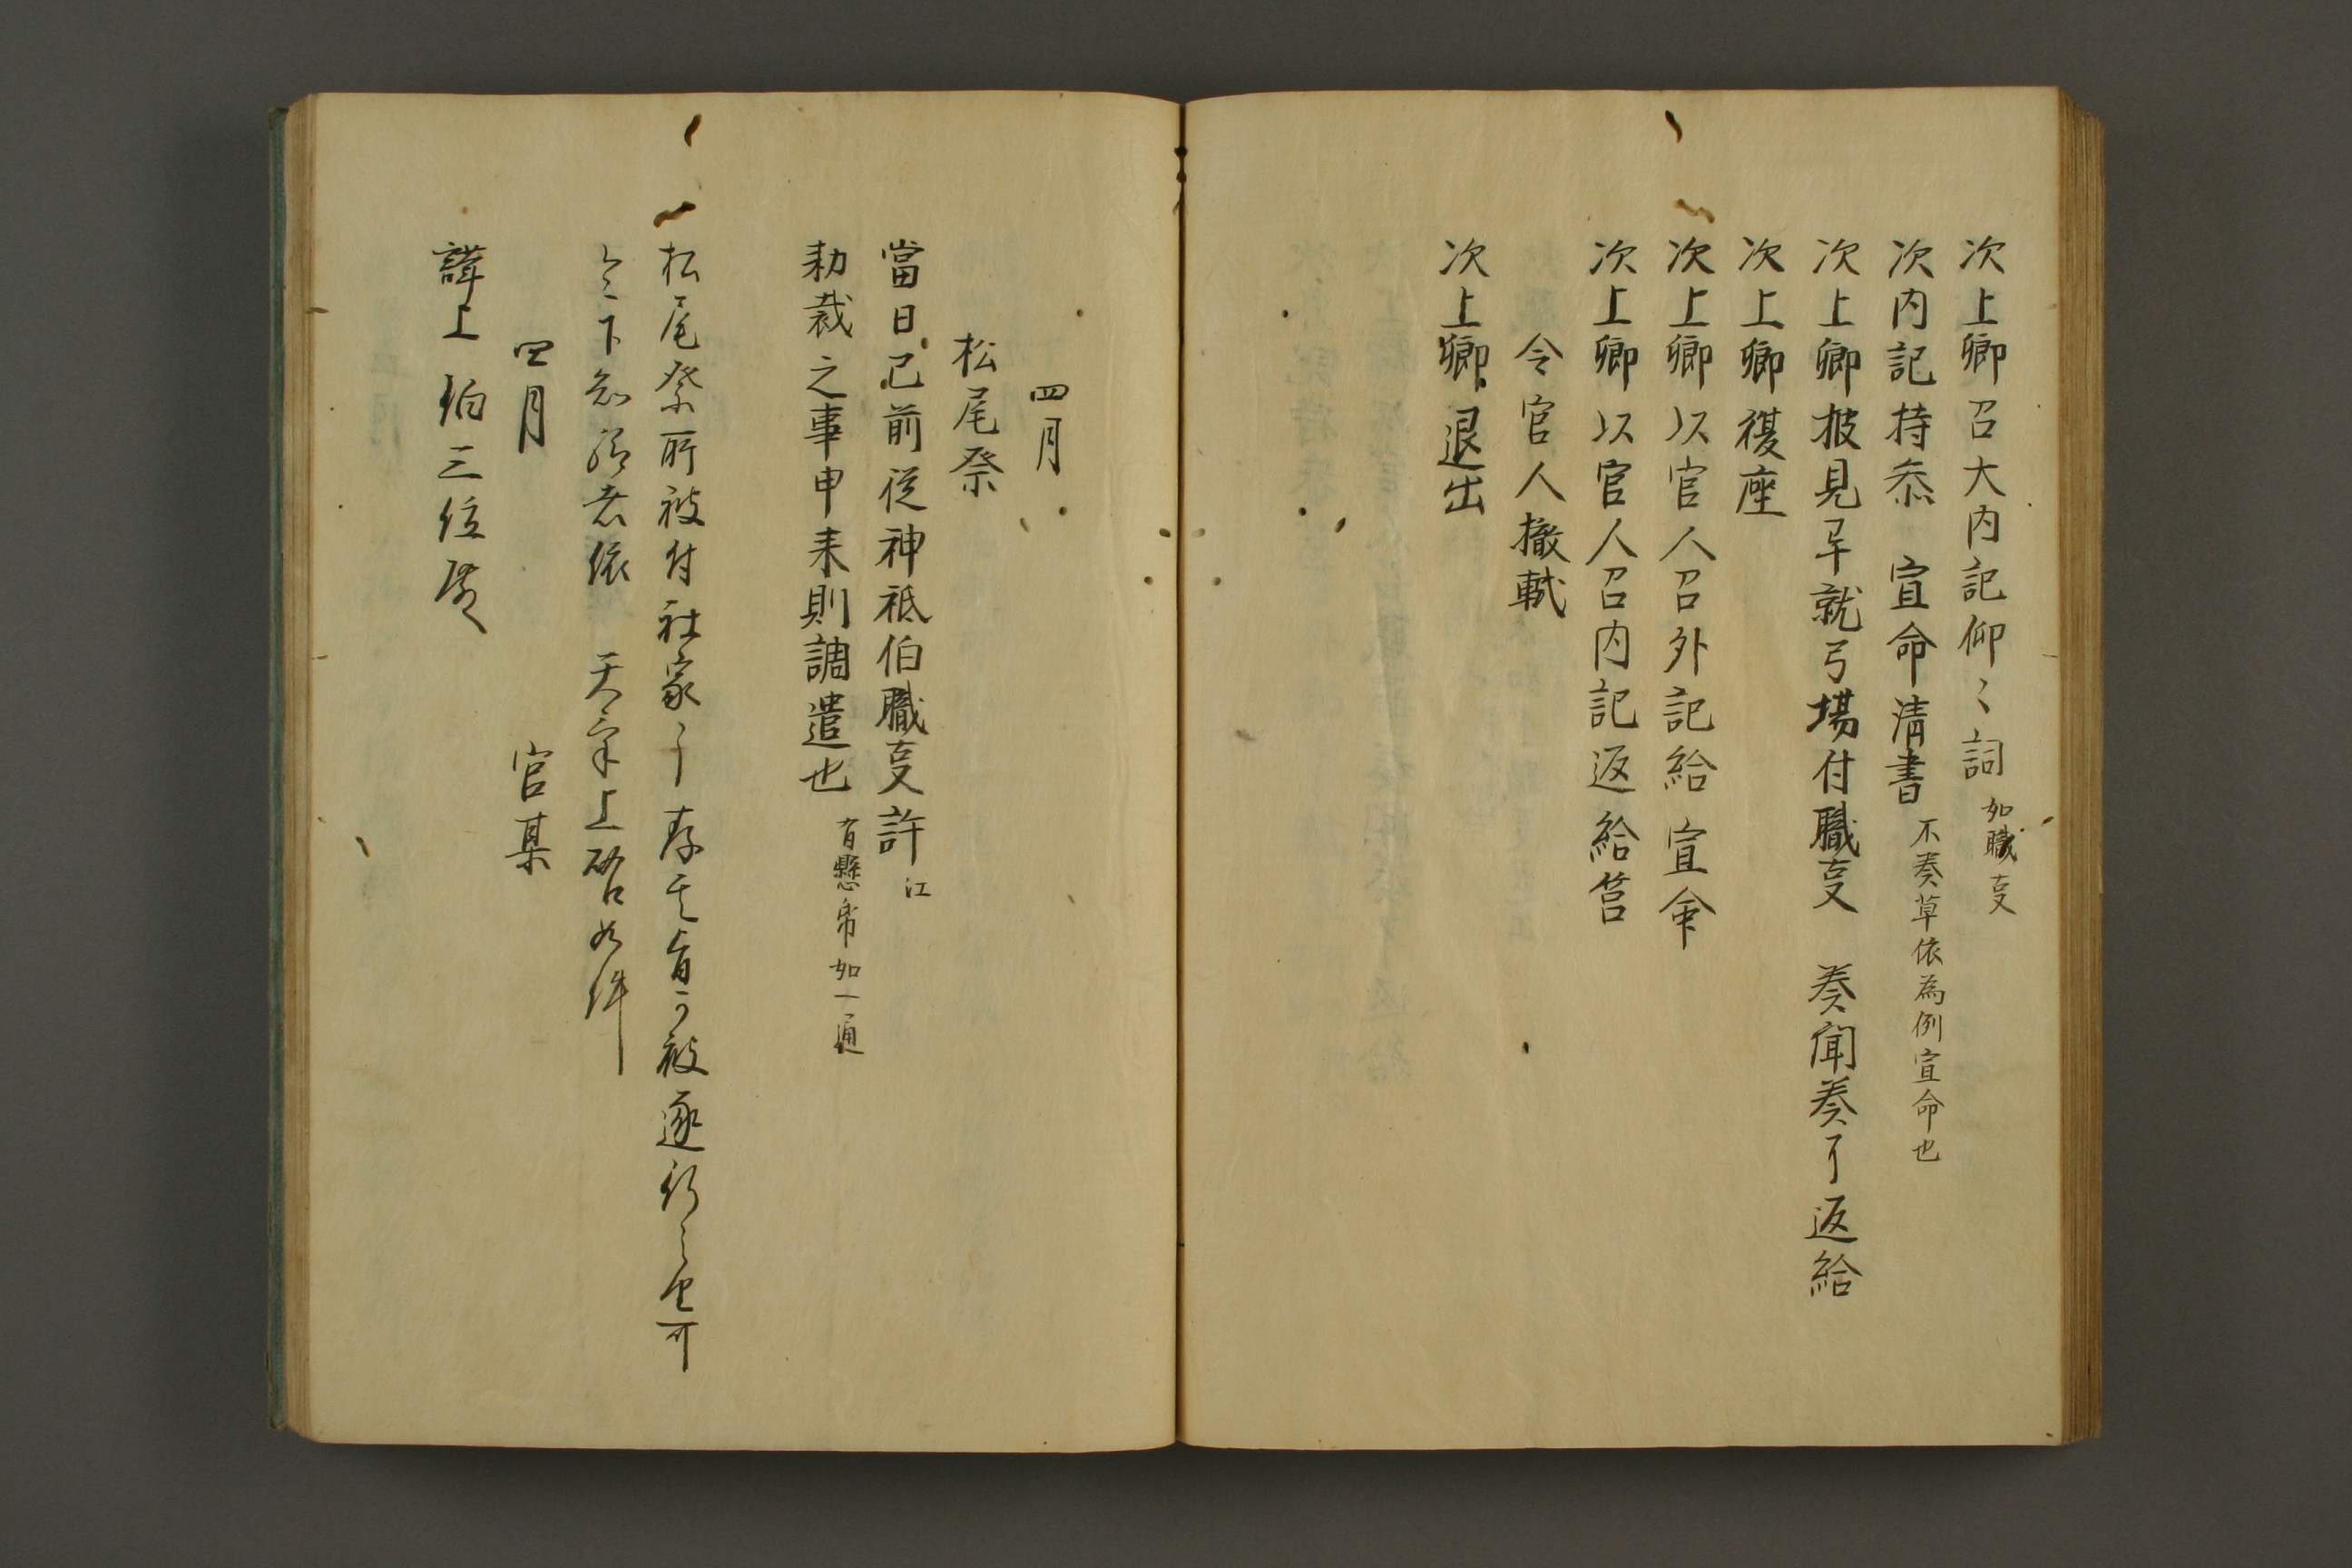 次上卿召大内記仰〻詞如職叓
次内記持叅 宣命清書不奏草依為例宣命也
次上卿披見畢就弓場付職叓 奏聞奏了返給
次上卿復座
次上卿以官人召外記給 宣命
次上卿以官人召内記返給筥
令官人撤軾
次上卿退出
四月
松尾祭
當日已前従神祗伯職叓許江
勅裁之事申来則調遣也有懸帋如一通
松尾祭所被付社家
令下知給者依 天氣上啓如件
四月 官某
謹上 伯三位殿